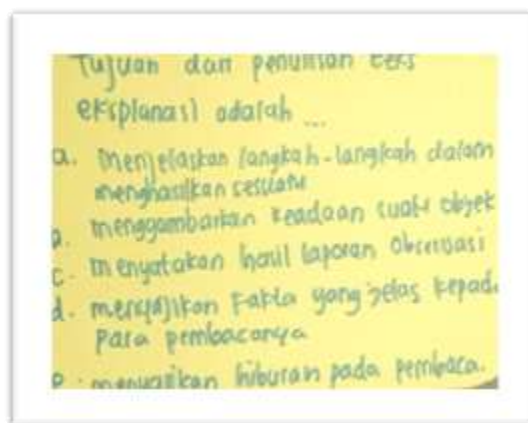 Tujuan dari penulisan teks
eksplanasi adalah ...
a. menjelaskan langkah-langkah dalam
menghasilkan sesuatu
b. menggambarkan keadaan suatu objek
c. menyatakan hasil laporan observasi
d. menyajikan fakta yang jelas kepada
para pembacanya
e. menyajikan hiburan pada pembaca.